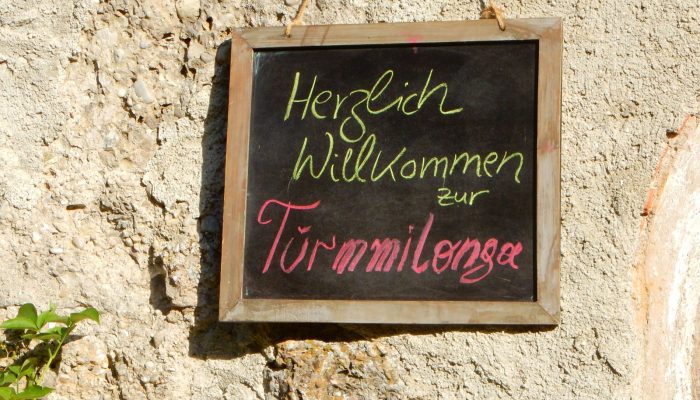 Herzlich
Willkommen
zur
Turmmilonga